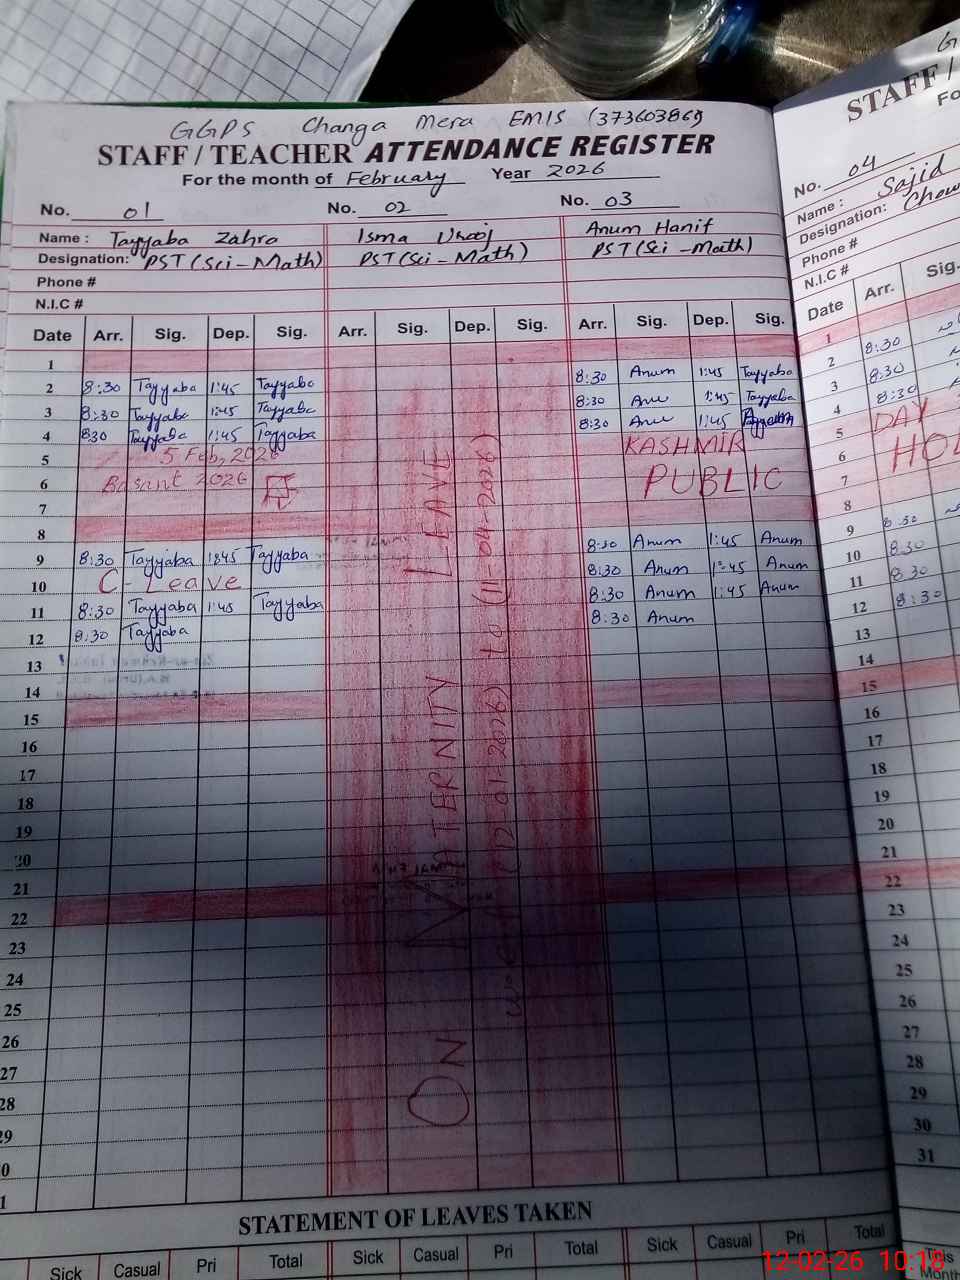 GGPS Changa Mera EMIS (37360386)
STAFF / TEACHER ATTENDANCE REGISTER
For the month of February Year 2026
No. 01 No. 02 No. 03
Name : Tayyaba Zahra Isma Urooj Anum Hanif
Designation: PST (Sci-Math) PST (Sci-Math) PST (Sci-Math)
Phone #
N.I.C #
Date Arr. Sig. Dep. Sig. Arr. Sig. Dep. Sig. Arr. Sig. Dep. Sig.
1
2 8:30 Tayyaba 1:45 Tayyaba 8:30 Anum 1:45 Tayyaba
3 8:30 Tayyaba 1:45 Tayyaba 8:30 1:45 Tayyaba
4 830 Tayyaba 1:45 Tayyaba 8:30 1:45
5 5 Feb, 2026 KASHMIR
6 Basant 2026 PUBLIC
7
8
9 8:30 Tayyaba 1:45 Tayyaba 8:30 Anum 1:45 Anum
10 C-Leave 8:30 Anum 1:45 Anum
11 8:30 Tayyaba 1:45 Tayyaba 8:30 Anum 1:45 Anum
12 8:30 Tayyaba 8:30 Anum
13
14
15
16
17
18
19
20
21
22
23
24
25
26
27
28
29
0
1
ON MATERNITY LEAVE
w.e.f (12-01-2026) to (11-04-2026)
STATEMENT OF LEAVES TAKEN
Sick Casual Pri Total Sick Casual Pri Total Sick Casual Pri Total
G
STAFF /
Fo
No. 04
Name : Sajid
Designation: Chow
Phone #
N.I.C #
Date Arr. Sig.
1
2 8:30
3 8:30
4 8:30
5 DAY
6 HOL
7
8
9 8:30
10 8:30
11 8:30
12 8:30
13
14
15
16
17
18
19
20
21
22
23
24
25
26
27
28
29
30
31
This
Month
12-02-26 10:18